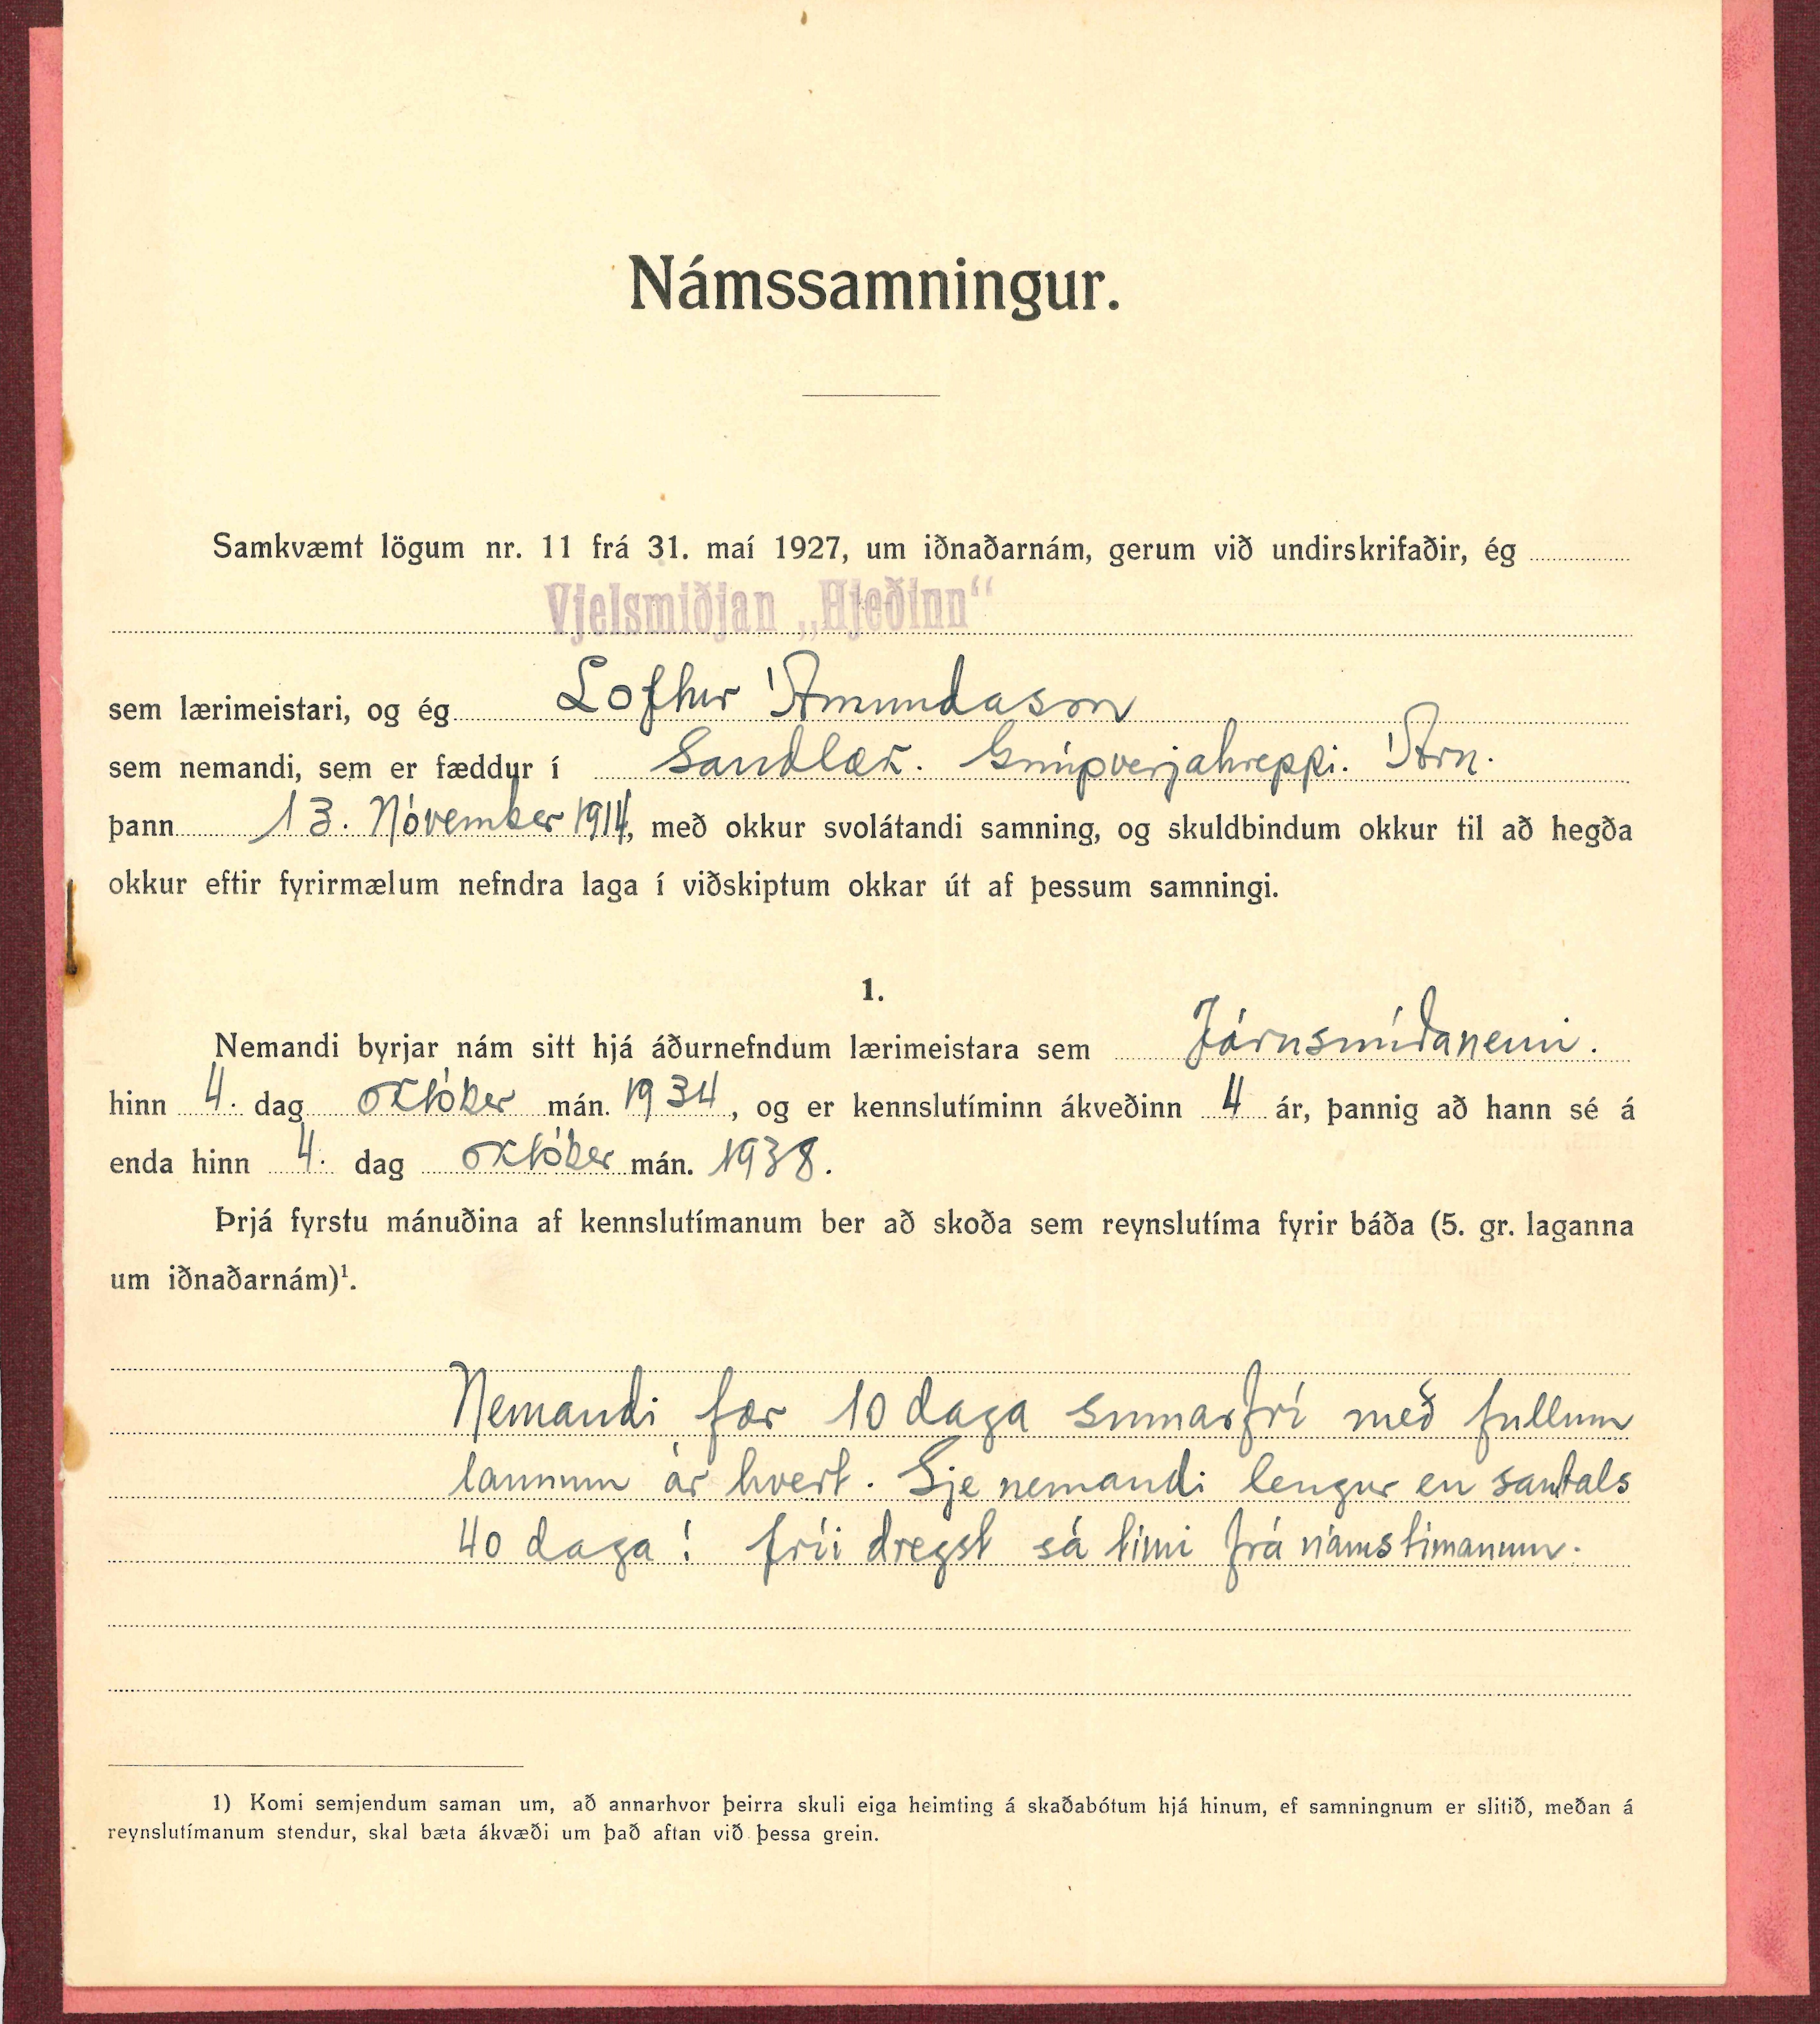 Námssamningur.
Samkvæmt lögum nr. 11 frá 31. maí 1927, um iðnaðarnám, gerum við undirskrifaðir, ég
Vjelsmiðjan „Hjeðinn“
sem lærimeistari, og ég Loftur Ámundason
sem nemandi, sem er fæddur í Sandlæk. Gnúpverjahreppi. Árn.
þann 13. Nóvember 1914, með okkur svolátandi samning, og skuldbindum okkur til að hegða
okkur eftir fyrirmælum nefndra laga í viðskiptum okkar út af þessum samningi.
1.
Nemandi byrjar nám sitt hjá áðurnefndum lærimeistara sem Járnsmíðanemi.
hinn 4. dag október mán. 1934, og er kennslutíminn ákveðinn 4 ár, þannig að hann sé á
enda hinn 4. dag október mán. 1938.
Þrjá fyrstu mánuðina af kennslutímanum ber að skoða sem reynslutíma fyrir báða (5. gr. laganna
um iðnaðarnám)¹.
Nemandi fær 10 daga sumarfrí með fullum
launum ár hvert. Sje nemandi lengur en samtals
40 daga í fríi dregst sá tími frá námstímanum.
1) Komi semjendum saman um, að annarhvor þeirra skuli eiga heimting á skaðabótum hjá hinum, ef samningnum er slitið, meðan á
reynslutímanum stendur, skal bæta ákvæði um það aftan við þessa grein.